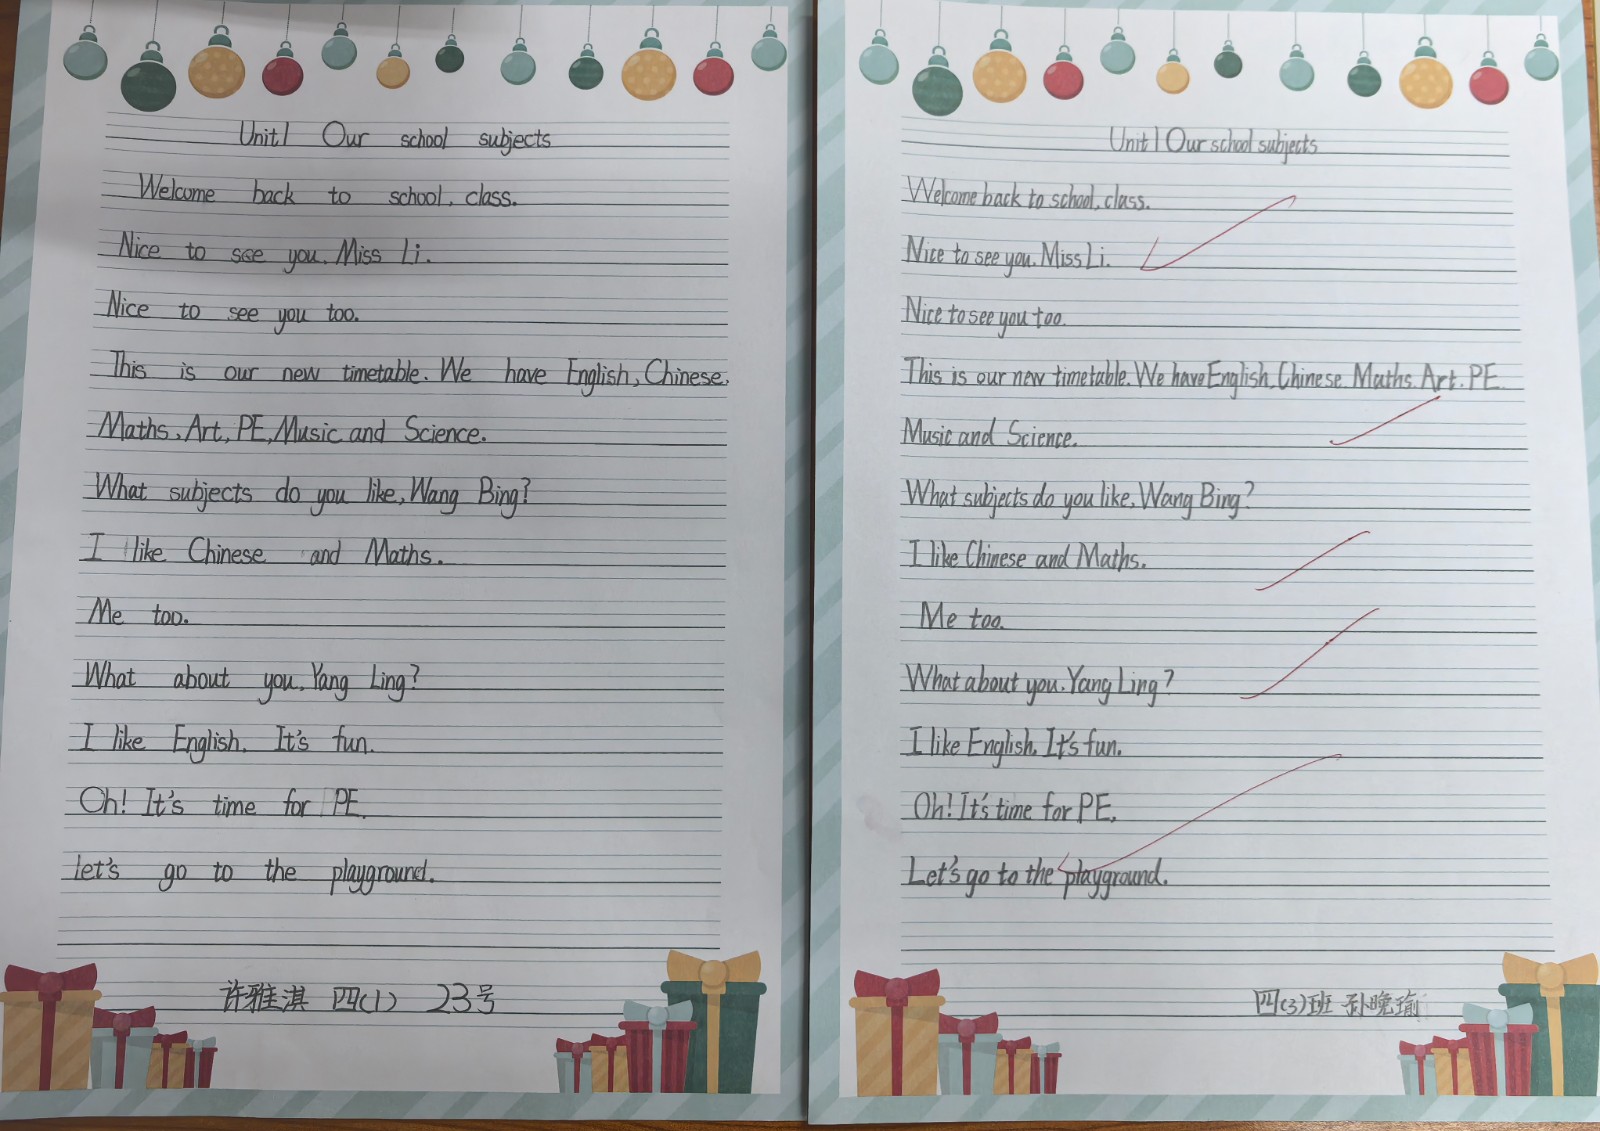 Unit1 Our school subjects
Welcome back to school, class.
Nice to see you, Miss Li.
Nice to see you too.
This is our new timetable. We have English, Chinese,
Maths, Art, PE, Music and Science.
What subjects do you like, Wang Bing?
I like Chinese and Maths.
Me too.
What about you, Yang Ling?
I like English. It's fun.
Oh! It's time for PE.
let's go to the playground.
许雅淇 四(1) 23号
Unit 1 Our school subjects
Welcome back to school, class.
Nice to see you, Miss Li.
Nice to see you too.
This is our new timetable. We have English, Chinese, Maths, Art, PE,
Music and Science.
What subjects do you like, Wang Bing?
I like Chinese and Maths.
Me too.
What about you, Yang Ling?
I like English. It's fun.
Oh! It's time for PE.
Let's go to the playground.
四(3)班 孙晚瑜